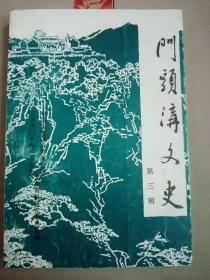 門頭溝文史
第三辑